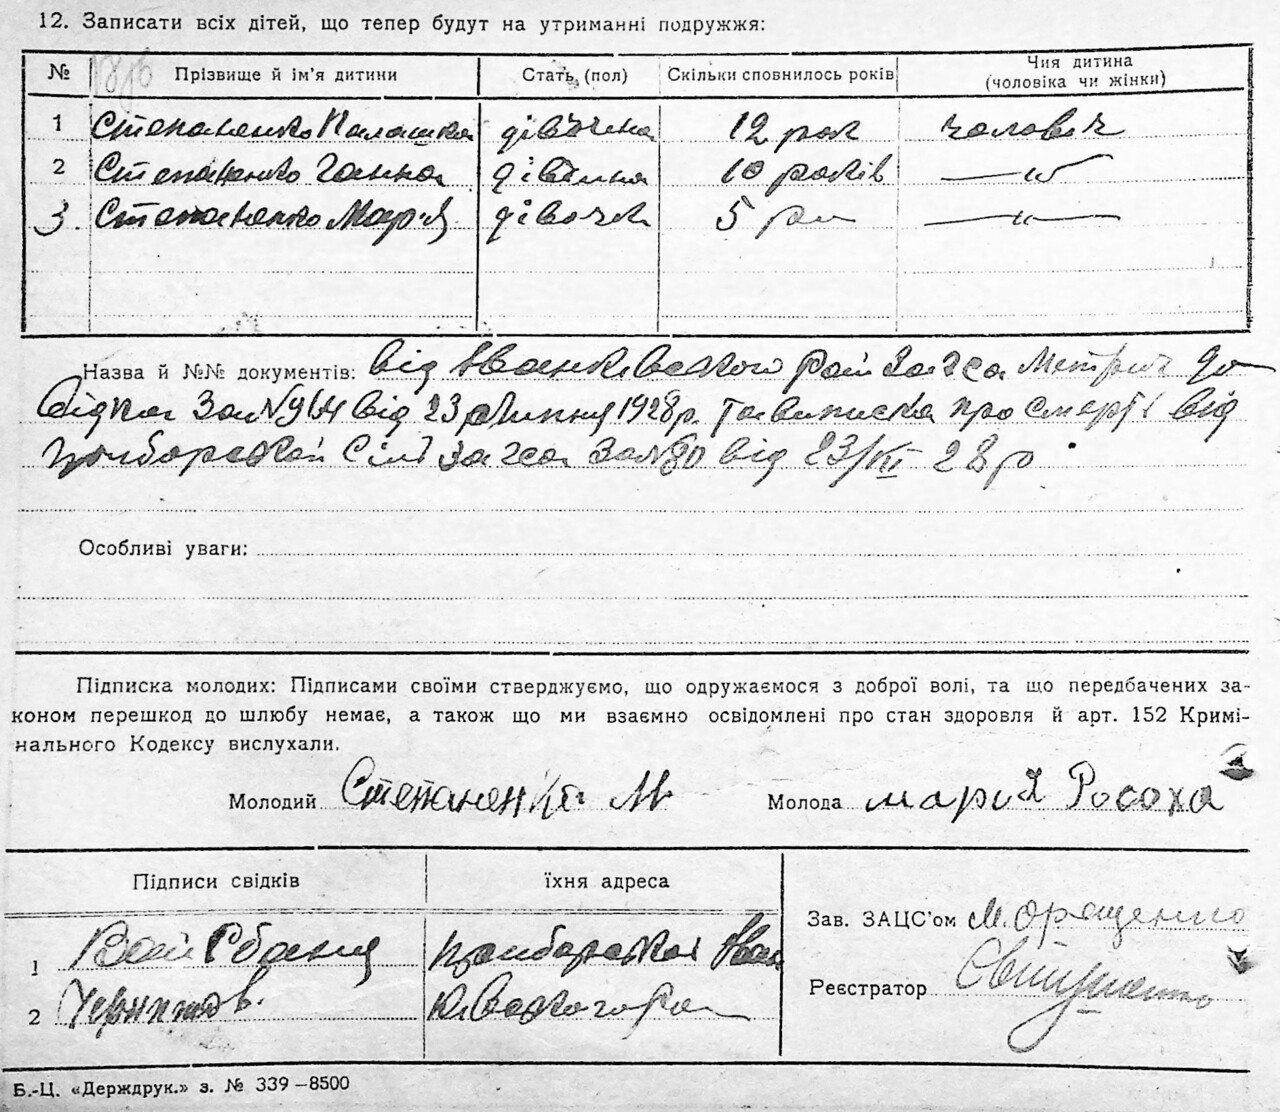 12. Записати всіх дітей, що тепер будут на утриманні подружжя:
№ Прізвище й ім'я дитини Стать (пол) Скільки сповнилось років Чия дитина (чоловіка чи жінки)
1 Степаненко Палашка дівчина 12 рок чоловіч
2 Степаненко Ганна дівчина 10 років —„—
3. Степаненко Марія дівочк 5 ро —„—
Назва й №№ документів: від Іванківського рай Загса Метрич
від 23 Липня 1928 р. та виписка про смерть від
Сіль Загса за №80 від 23/VII 28 р
Особливі уваги:
Підписка молодих: Підписами своїми стверджуємо, що одружаємося з доброї волі, та що передбачених за-
коном перешкод до шлюбу немає, а також що ми взаємно освідомлені про стан здоровля й арт. 152 Кримі-
нального Кодексу вислухали.
Молодий Степаненко М Молода марія Росоха
Підписи свідків їхня адреса
Зав. ЗАЦС'ом М. Орященко
1
Реєстратор
2
Б.-Ц. «Держдрук.» з. № 339–8500